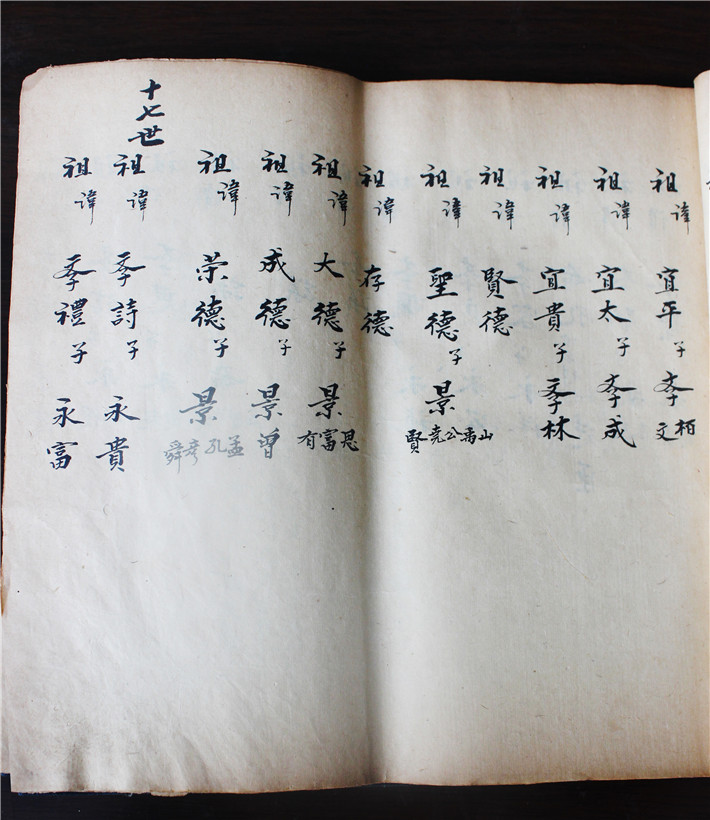 祖諱宜平子季柏文
祖諱宜太子季成
祖諱宜貴子季林
祖諱賢德
祖諱聖德子景山禹公尭賢
祖諱存德
祖諱大德子景思富有
祖諱成德子景曾
祖諱荣德子景孟孔彦舜
十七世
祖諱季詩子永貴
祖諱季禮子永富